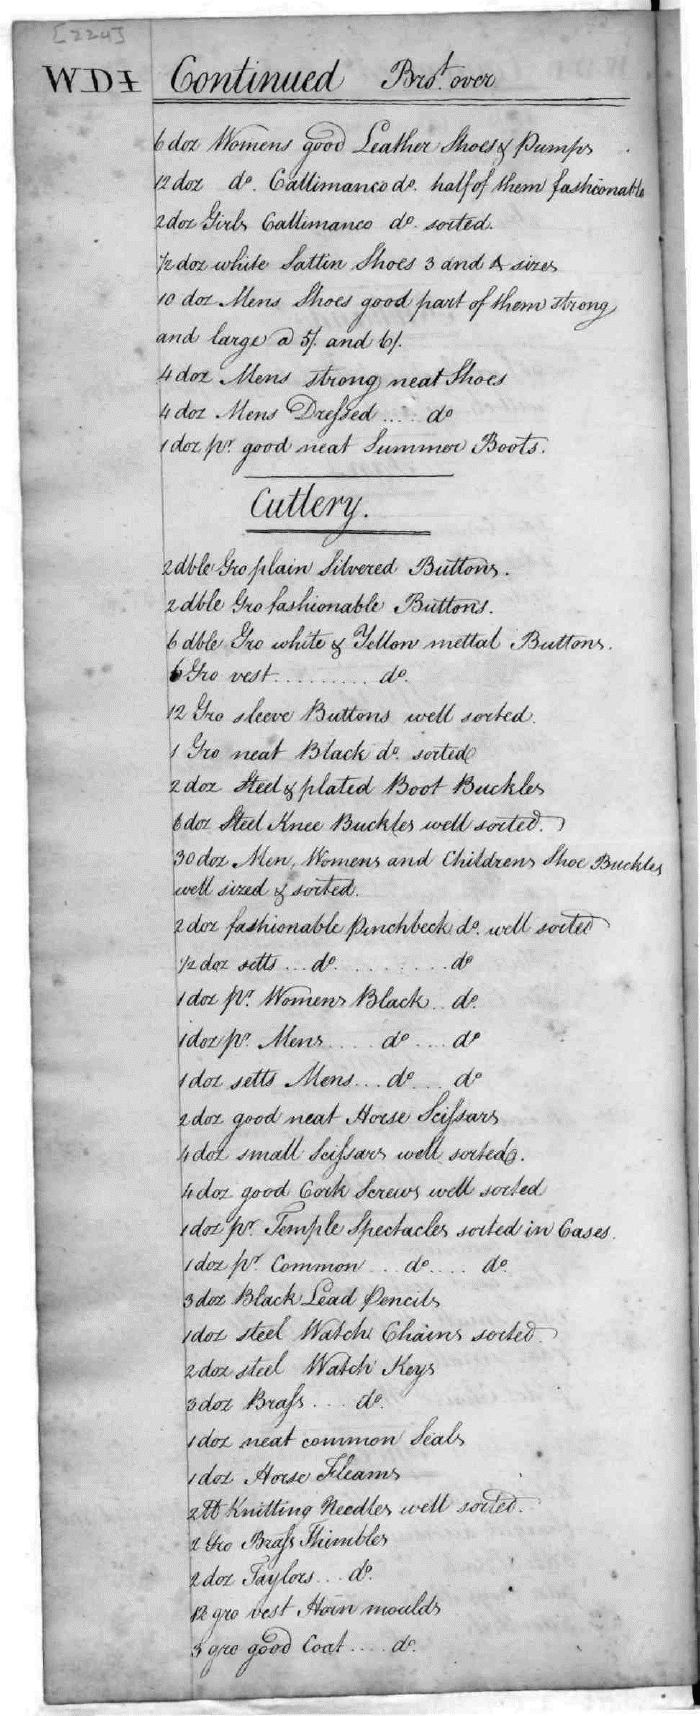 [224]
WDI Continued Bro.t over
6 doz Womens good Leather Shoes & Pumps
12 doz do. Callimanco do. half of them fashionable
2 doz Girls Callimanco do. sorted.
1/2 doz white Sattin Shoes 3 and 4 sizes
10 doz Mens Shoes good part of them strong
and large a 5/. and 6/.
4 doz Mens strong neat Shoes
4 doz Mens Dressed .... do
1 doz pr. good neat Summer Boots.
Cutlery.
2 dble Gro plain Silvered Buttons.
2 dble Gro fashionable Buttons.
6 dble Gro white & Yellow mettal Buttons.
6 Gro vest ......... do.
12 Gro sleeve Buttons well sorted.
1 Gro neat Black do. sorted
2 doz Steel & plated Boot Buckles
6 doz Steel Knee Buckles well sorted.
30 doz Men, Womens and Childrens Shoe Buckles
well sized & sorted.
2 doz fashionable Pinchbeck do. well sorted
1/2 doz setts ... do. ........ do
1 doz pr. Womens Black .. do.
1 doz pr. Mens .... do .... do
1 doz setts Mens ... do ... do
2 doz good neat Horse Scissars
4 doz small Scissars well sorted.
4 doz good Cork Screws well sorted
1 doz pr. Temple Spectacles sorted in Cases.
1 doz pr. Common ... do .... do.
3 doz Black Lead Pencils
1 doz steel Watch Chains sorted.
2 doz steel Watch Keys
3 doz Brass .... do.
1 doz neat common Seals
1 doz Horse Fleams
2 lb Knitting Needles well sorted.
2 Gro Brass Thimbles
2 doz Taylors ... do.
12 gro vest Horn moulds
3 gro good Coat .... do.